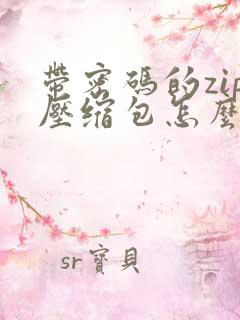 帶密碼的zip
壓縮包怎麼
sr寶貝